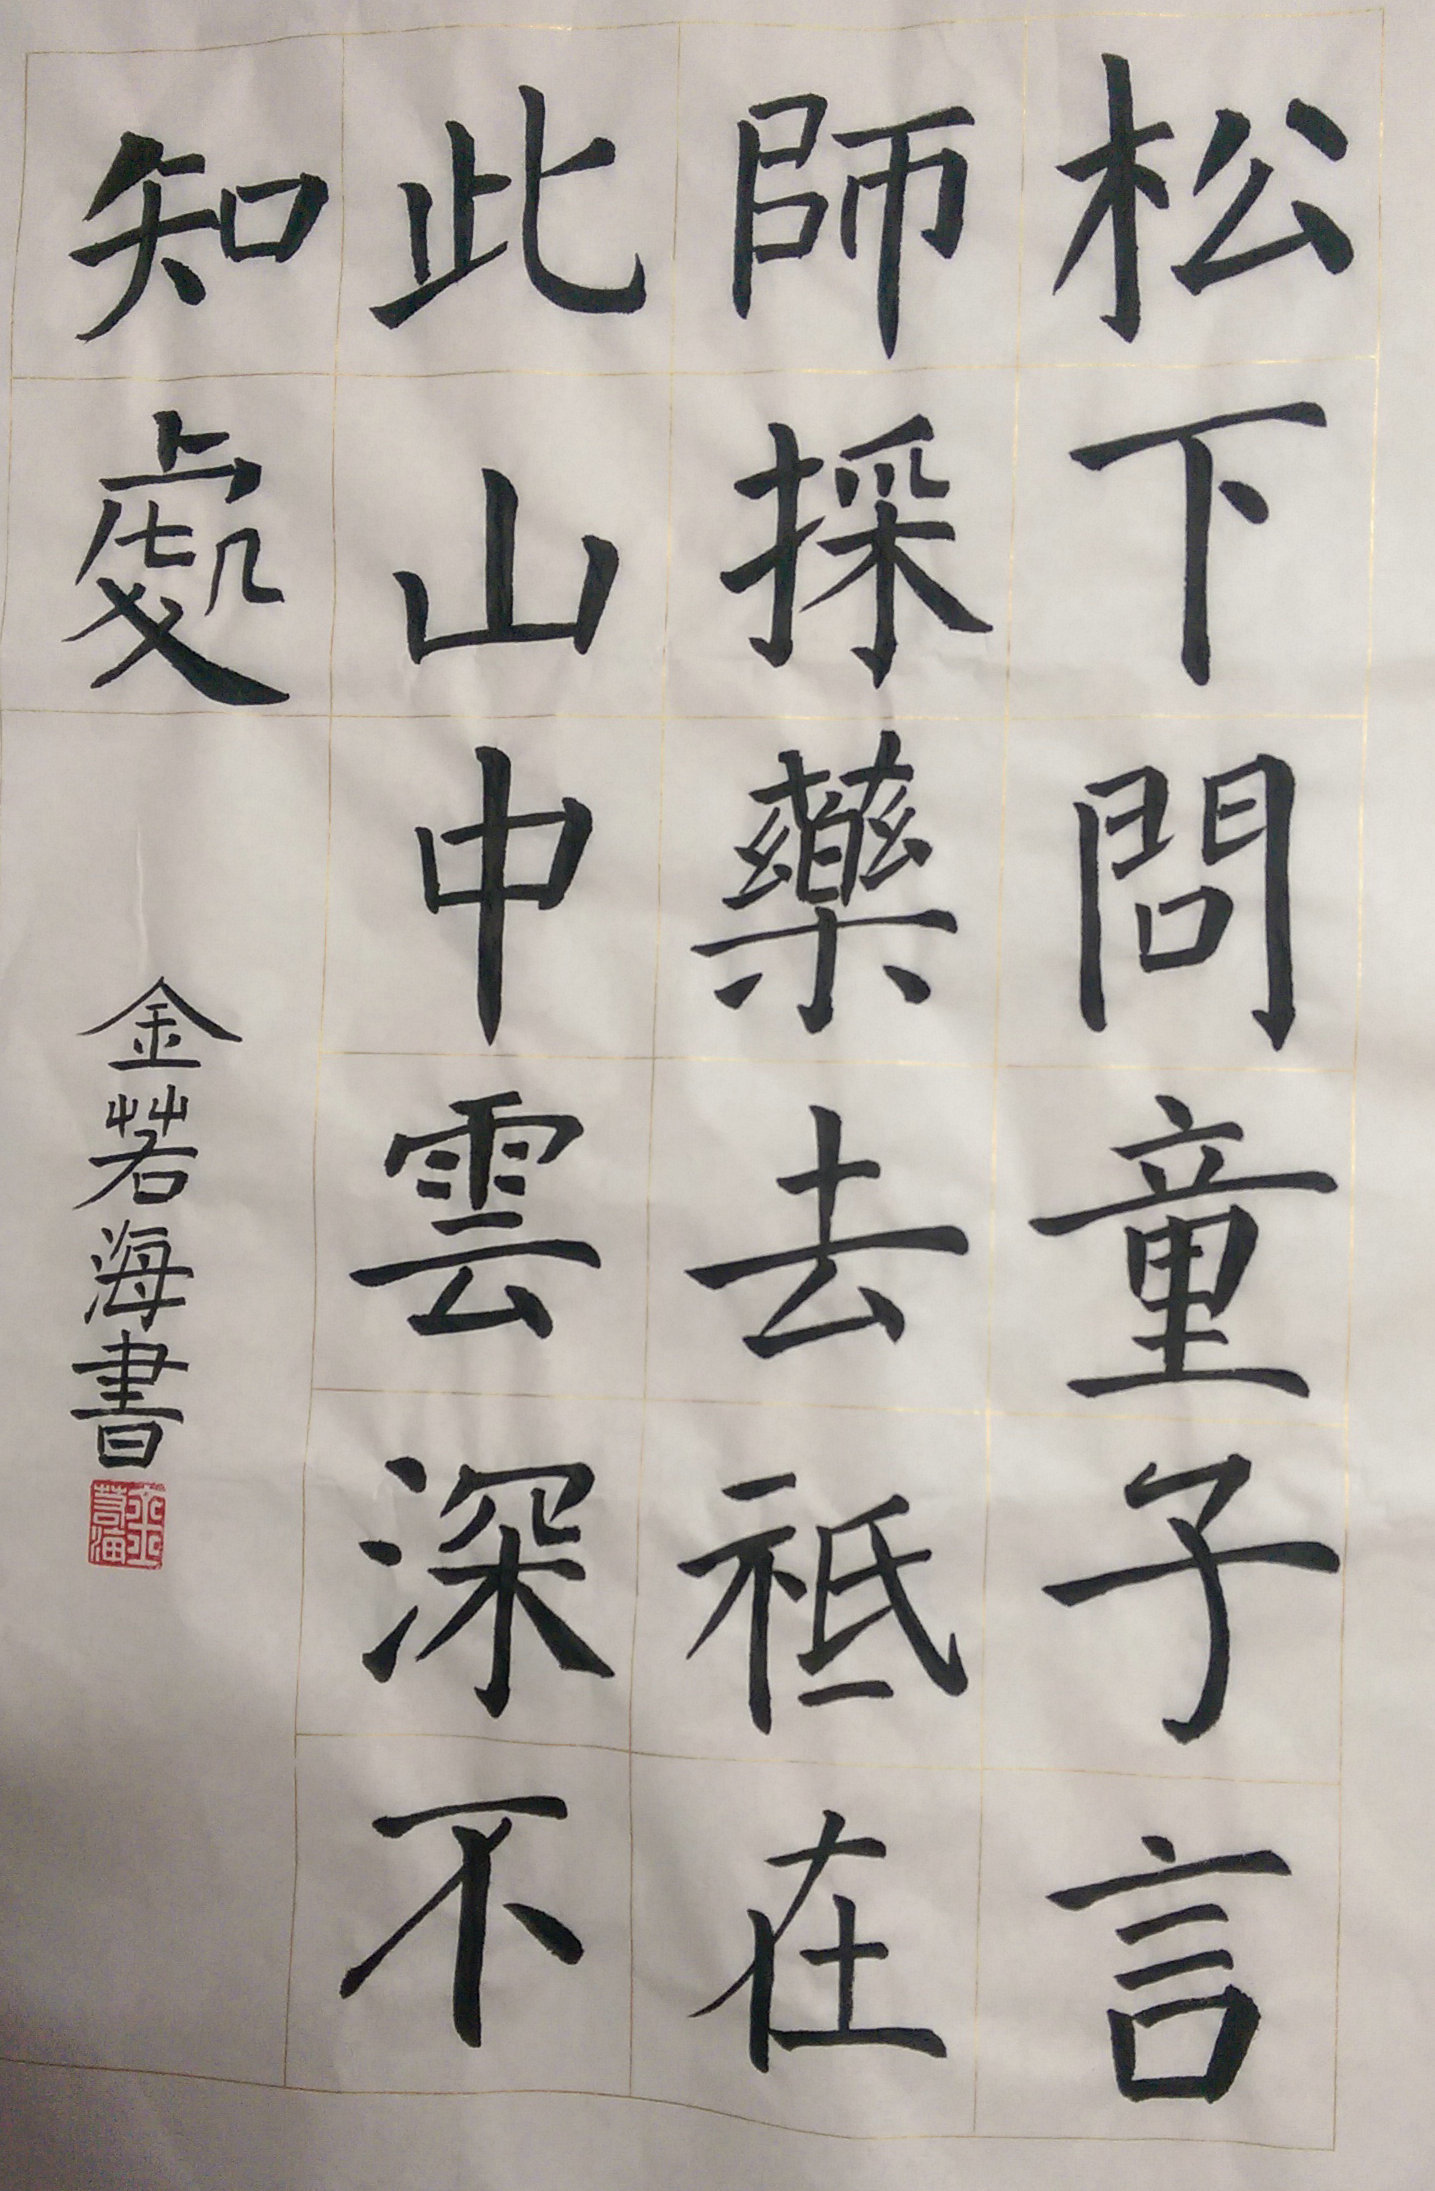 松下問童子言
師採藥去祗在
此山中雲深不
知處
金若海書
金若海